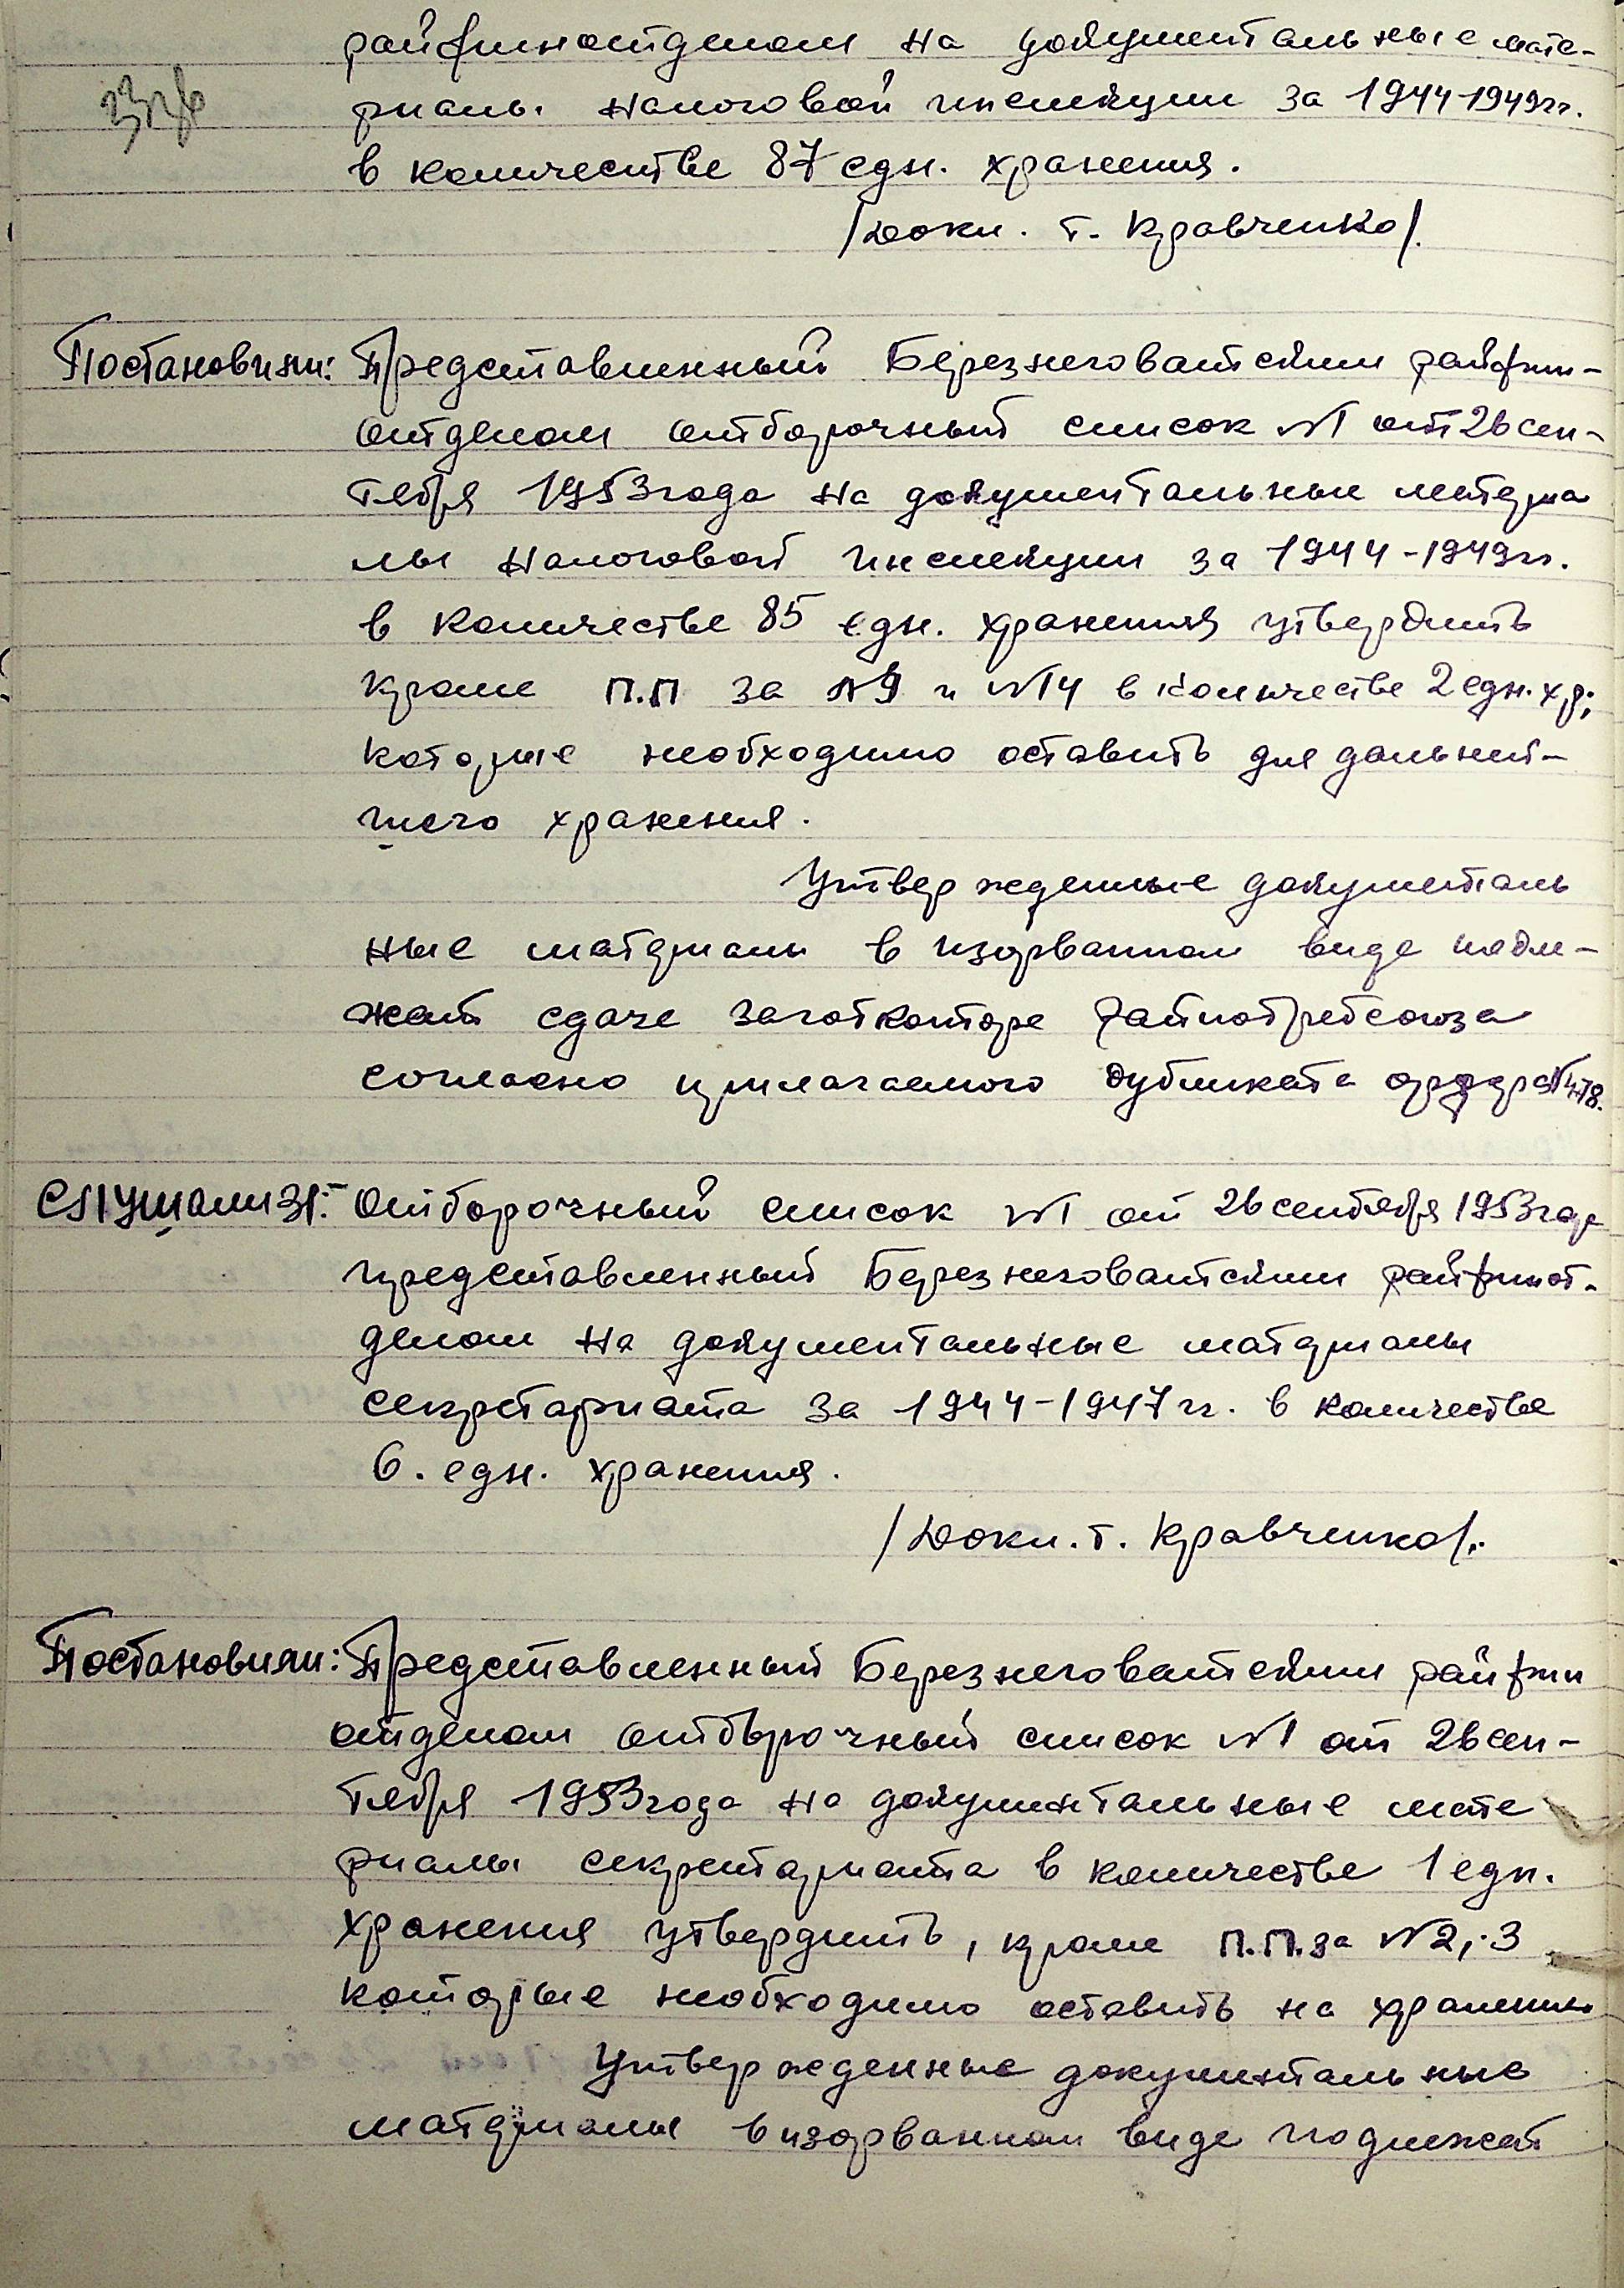 райфинотделом на документальные мате-
риалы налоговой инспекции за 1944-1949гг.
в количестве 87 едн. хранения.
/Докл. т. Кравченко/.
Постановили: Представленный Березнеговатским райфин-
отделом отборочный список №1 от 26 сен-
тября 1953 года на документальные материа
лы налоговой инспекции за 1944-1949гг.
в количестве 85 едн. хранения утвердить
кроме п.п за №9 и №14 в количестве 2 едн. хр;
которые необходимо оставить для дальней-
шего хранения.
Утвержденные документаль
ные материалы в изорванном виде подле-
жат сдаче заготконторе райпотребсоюза
согласно прилагаемого дубликата ордера №478.
Слушали 31:- Отборочный список №1 от 26 сентября 1953 года
представленный Березнеговатским райфинот-
делом на документальные материалы
секретариата за 1944-1947 гг. в количестве
6. едн. хранения.
/Докл. т. Кравченко/.
Постановили: Представленный Березнеговатским райфин
отделом отборочный список №1 от 26 сен-
тября 1953 года на документальные мате
риалы секретариата в количестве 1 едн.
хранения утвердить, кроме п.п. за №2,3
которые необходимо оставить на хранении
Утвержденные документальные
материалы в изорванном виде подлежат